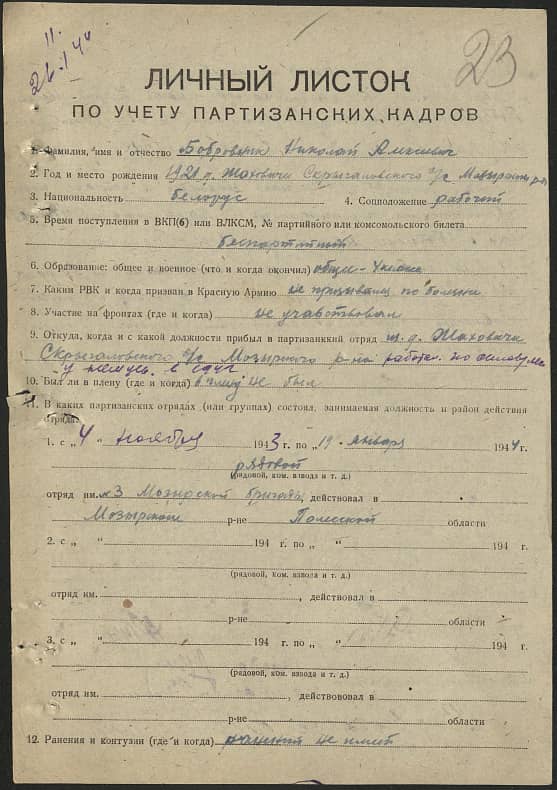 11.
26.1 44
23
ЛИЧНЫЙ ЛИСТОК
ПО УЧЕТУ ПАРТИЗАНСКИХ КАДРОВ
1. Фамилия, имя и отчество Бобровник Николай
2. Год и место рождения 1921 д. Жаховичи Скрыгаловского с/с Мозырского р-на
3. Национальность белорус 4. Соцположение рабочий
5. Время поступления в ВКП(б) или ВЛКСМ, № партийного или комсомольского билета
беспартийный
6. Образование: общее и военное (что и когда окончил) общее - 4 класса
7. Каким РВК и когда призван в Красную Армию не призывался по болезни
8. Участие на фронтах (где и когда) не участвовал
9. Откуда, когда и с какой должности прибыл в партизанский отряд из д. Жаховичи
Скрыгаловского с/с Мозырского р-на работал по
у немцев в
10. Был ли в плену (где и когда) в плену не был
11. В каких партизанских отрядах (или группах) состоял, занимаемая должность и район действия
отряда:
1. с „4“ ноября 1943 г. по „19“ января 1944 г.
рядовой
(рядовой, ком. взвода и т. д.)
отряд им. №3 Мозырской бригады, действовал в
Мозырском р-не Полесской области
2. с „ “ 194 г. по „ “ 194 г.
(рядовой, ком. взвода и т. д.)
отряд им. , действовал в
р-не области
3. с „ “ 194 г. по „ “ 194 г.
(рядовой, ком. взвода и т. д.)
отряд им. , действововал в
р-не области
12. Ранения и контузии (где и когда) ранений не имел